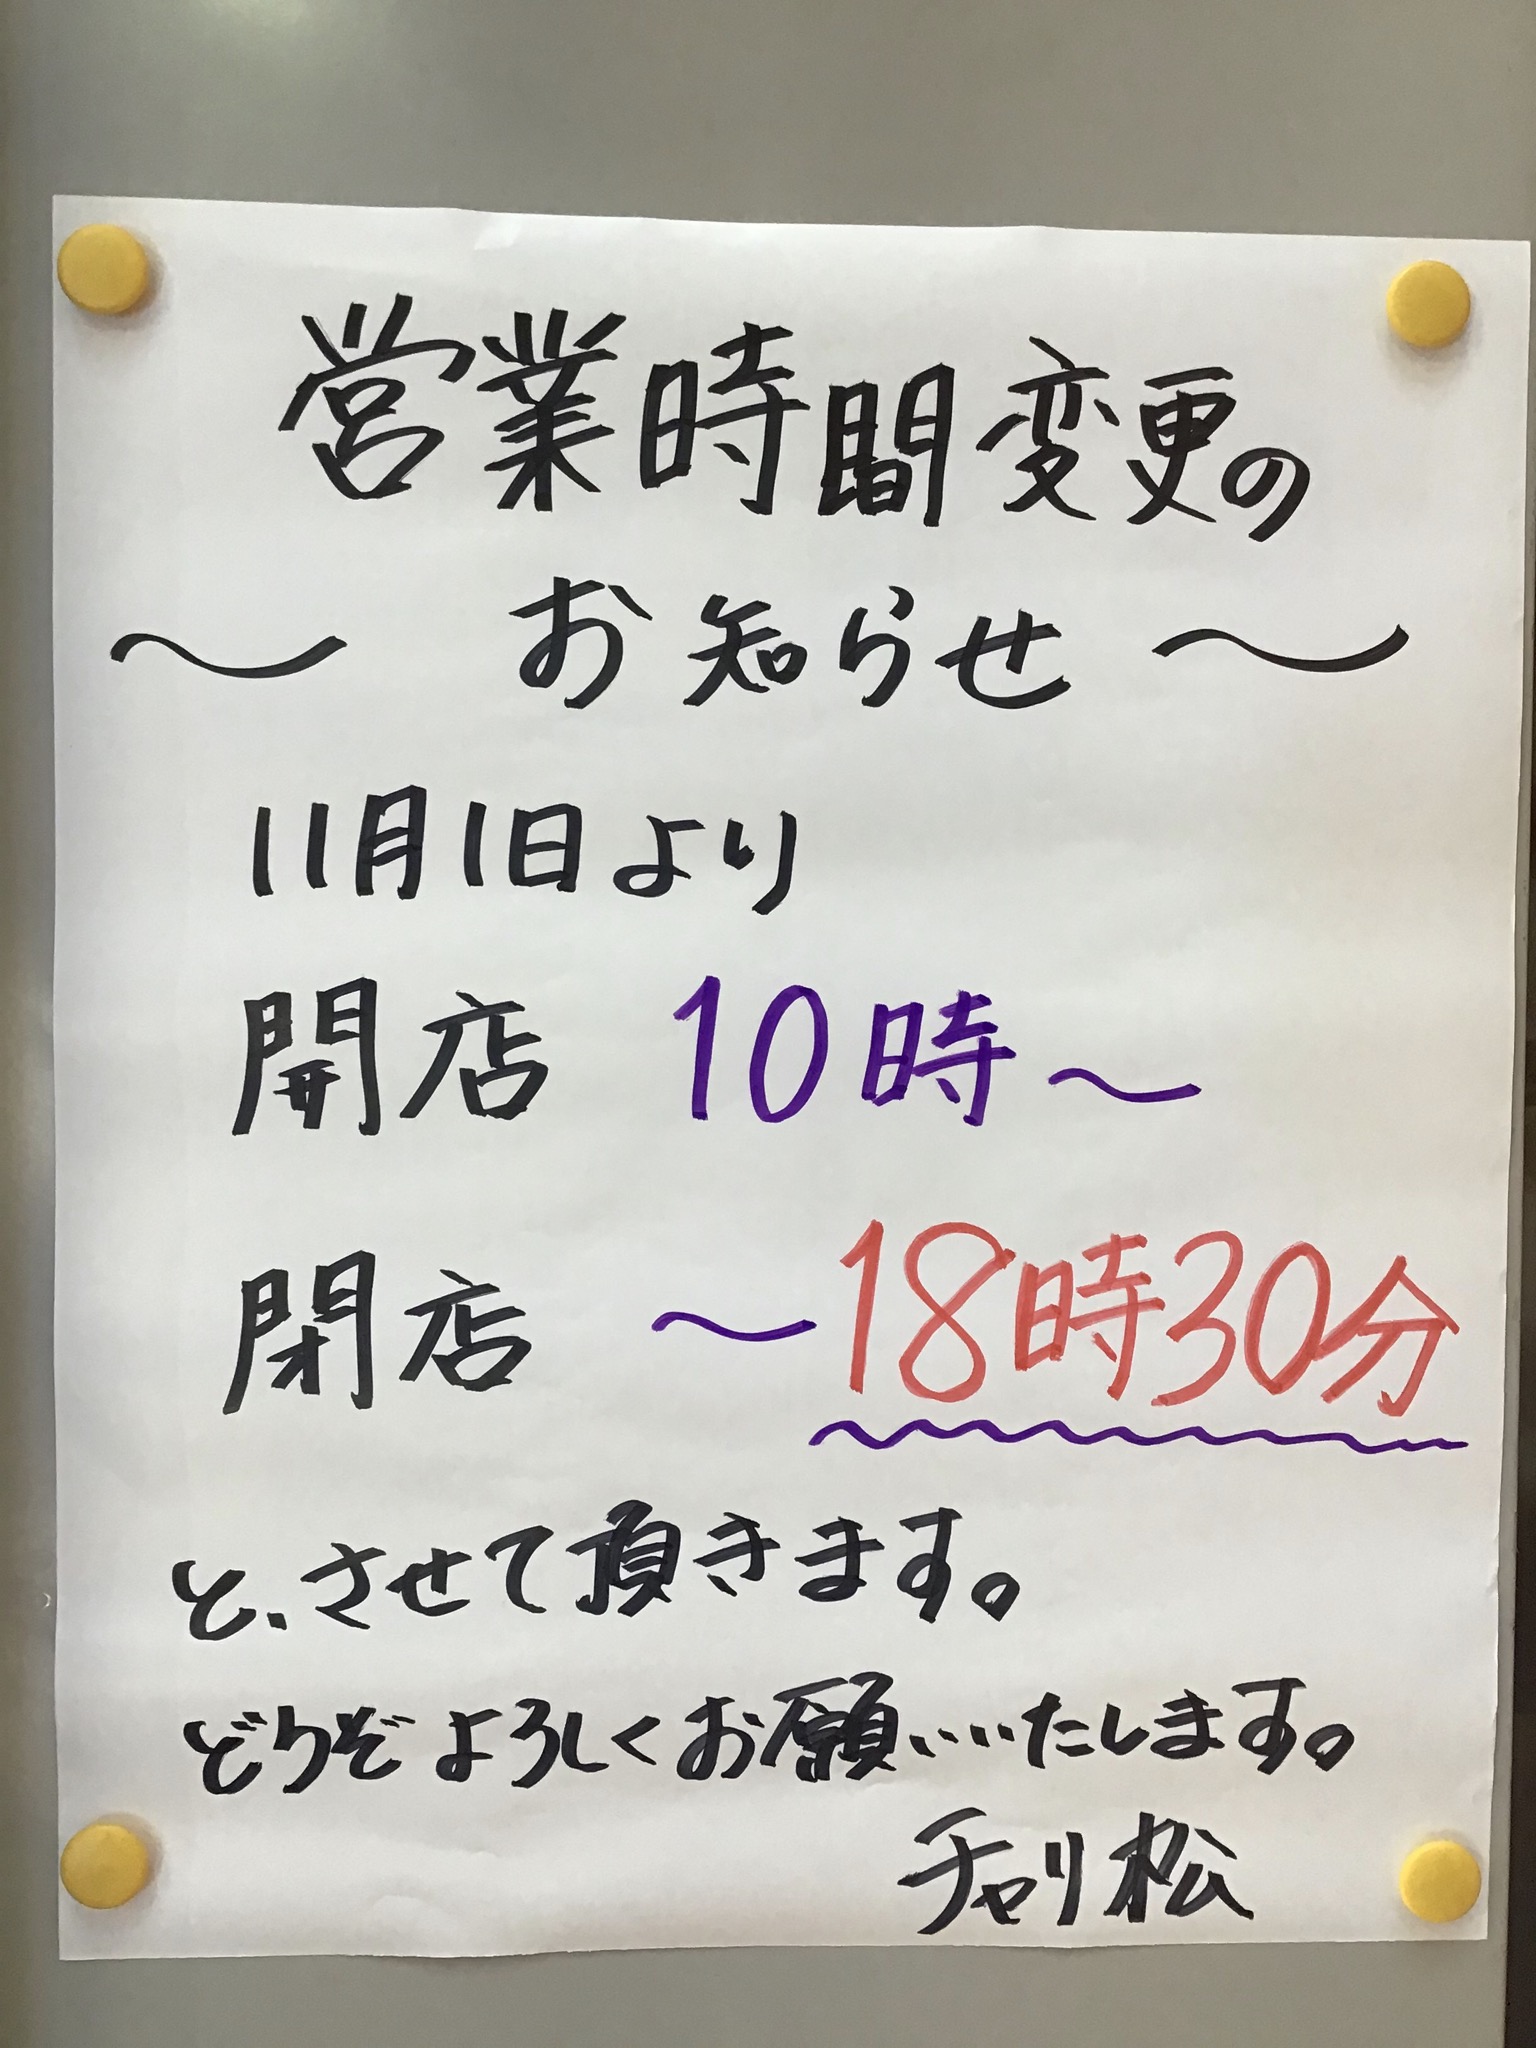 営業時間変更の
〜 お知らせ 〜
11月1日より
開店 10時〜
閉店 〜18時30分
と、させて頂きます。
どうぞよろしくお願いいたします。
チャリ松